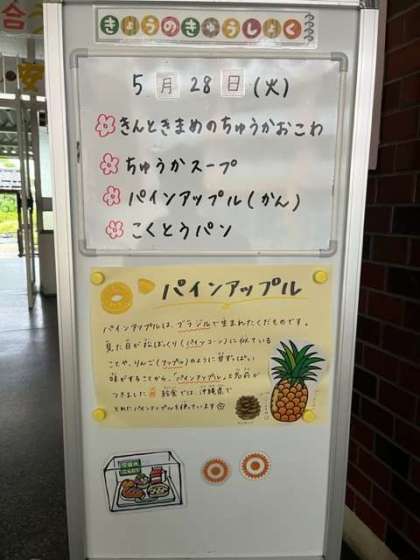 きょうのきゅうしょく
5月28日(火)
きんときまめのちゅうかおこわ
ちゅうかスープ
パインアップル(かん)
こくとうパン
パインアップル
パインアップルは、ブラジルで生まれたくだものです。
見た目が松ぼっくり(パインコーン)に似ている
ことや、りんご(アップル)のように甘ずっぱい
味がすることから、「パインアップル」と名前が
つきました 給食では、沖縄県で
とれたパインアップルを使っています